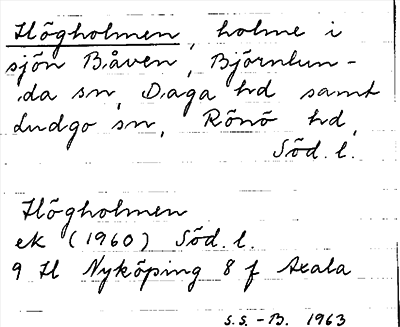 Högholmen, holme i
sjön Båven, Björnlun-
da sn, Daga hd samt
Ludgo sn, Rönö hd,
Söd. l.
Högholmen
ek (1960) Söd. l.
9 H Nyköping 8 f Axala
S.S.-B. 1963